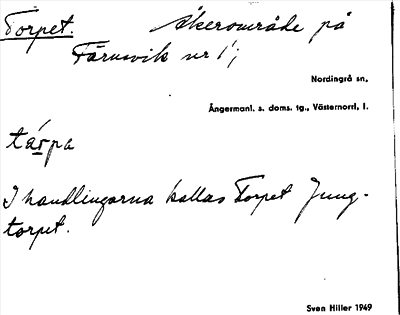 Torpet. Åkerområde på
Färnsvik nr 1;
Nordingrå sn,
Ångermanl. s. doms. tg., Västernorrl. l.
tårpa
I handlingarna kallas Torpet Jung-
torpet.
Sven Hiller 1949